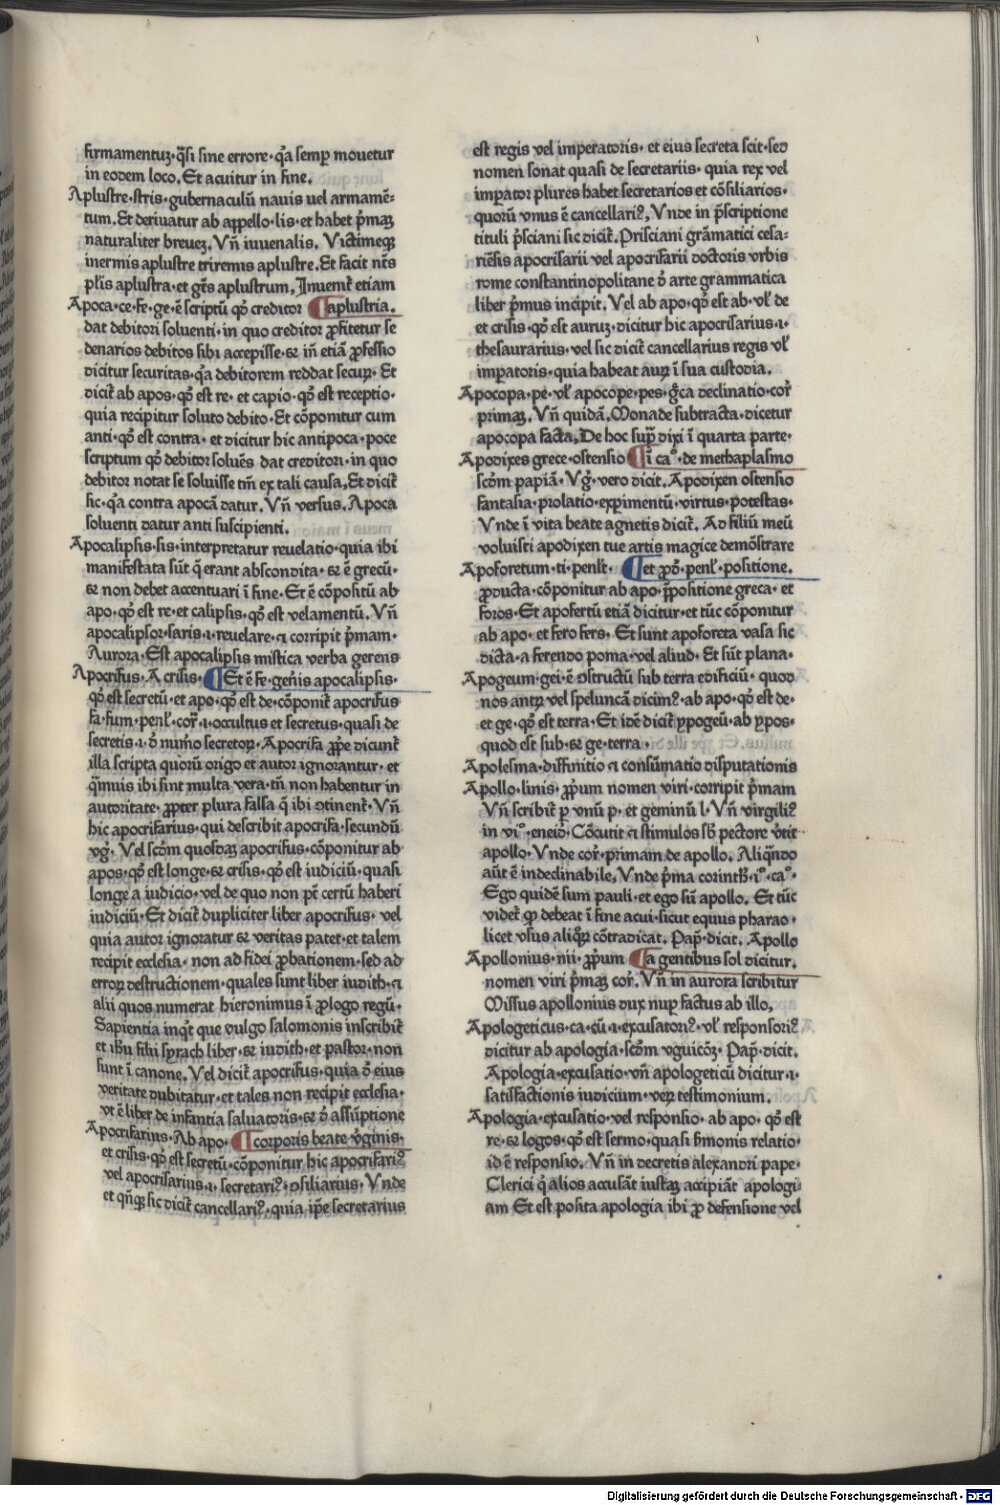 firmamentuꝫ·q̈si sine errore·q̇a semꝑ mouetur
in eodem loco. Et acuitur in fine.
Aplustre·stris·gubernaculū nauis uel armamē-
tum. Et deriuatur ab appello·lis·et habet p̄maꝫ
naturaliter breueꝫ. Vn̄ iuuenalis. Victimeqꝫ
inermis aplustre triremis aplustre. Et facit nt̄s
plīs aplustra·et gt̄s aplustrum. Inuenit̄ etiam
Apoca·ce·fe·ge·ē scriptū qō creditor ¶aplustria.
dat debitori soluenti·in quo creditor ꝓfitetur se
denarios debitos sibi accepisse·⁊ in̄ etiā ꝓfessio
dicitur securitas·q̇a debitorem reddat secuꝝ. Et
dicit̄ ab apos·qō est re·et capio·qō est receptio·
quia recipitur soluto debito·Et cōponitur cum
anti·qō est contra·et dicitur hic antipoca·poce
scriptum qō debitor soluēs dat creditori·in quo
debitor notat se soluisse tm̄ ex tali causa. Et dicit̄
sic·q̇a contra apocā datur. Vn̄ versus. Apoca
soluenti datur anti suscipienti.
Apocalipsis·sis·interpretatur reuelatio·quia ibi
manifestata sūt q̄ erant abscondita·⁊ ē grecū·
⁊ non debet accentuari ī fine·Et ē cōpositū ab
apo·qō est re·et calipsis·qō est velamentū. Vn̄
apocalipsor·saris·ı·reuelare·⁊ corripit p̄mam·
Aurora·Est apocalipsis mistica verba gerens
Apocrifus·A crisis· ¶Et ē fe·gen̄is apocalipsis·
qō est secretū·et apo·qō est de·cōponit̄ apocrifus
fa·fum·penl̄·cor̄·ı·occultus et secretus·quasi de
secretis·ı·ō num̄o secretoꝝ·Apocrifa ꝓpͤ dicunt̄
illa scripta quorū origo et autor ignorantur·et
q̄muis ibi sint multa vera·tn̄ non habentur in
autoritate·ꝓpter plura falsa q̄ ibi ꝯtinent̄·Vn̄
hic apocrifarius·qui describit apocrifa·secundū
vḡ. Vel scōm quosdaꝫ apocrifus·cōponitur ab
apos·qō est longe·⁊ crisis·qō est iudiciū·quasi
longe a iudicio·vel de quo non pt̄ certū haberi
iudiciū·Et dicit̄ dupliciter liber apocrifus·vel
quia autor ignoratur ⁊ veritas patet·et talem
recipit ecclesia·non ad fidei ꝓbationem·sed ad
erroꝝ destructionem·quales sunt liber iudith·⁊
alii quos numerat hieronimus ī ꝓlogo regū·
Sapientia inqt̄ que vulgo salomonis inscribit̄
et ihū filii syrach liber·⁊ iudith·et pastor·non
sunt ī canone. Vel dicit̄ apocrifus·quia ō eius
veritate dubitatur·et tales non recipit ecclesia·
vt ē liber de infantia saluatoris·⁊ ō assūptione
Apocrifarius·Ab apo· ¶corporis beate v̄ginis·
et crisis·qō est secretū·cōponitur hic apocrifariꝰ
vel apocrisarius·ı·secretariꝰ·ꝯsiliarius·Vnde
et qn̄qꝫ sic dicit̄ cancellariꝰ·quia ip̄e secretarius
est regis vel imperatoris·et eius secreta scit·sed
nomen sonat quasi de secretariis·quia rex vel
imꝑator plures habet secretarios et cōsiliarios·
quorū vnus ē cancellariꝰ. Vnde in p̄scriptione
tituli p̄sciani sic dicit̄. Prisciani grāmatici cesa-
riēsis apocrisarii vel apocrifarii doctoris vrbis
rome constantinopolitane ō arte grammatica
liber p̄mus incipit. Vel ab apo·qō est ab·vl̄ de
et crisis·qō est auruꝫ·dicitur hic apocrisarius·ı·
thesaurarius·vel sic dicit̄ cancellarius regis vl̄
imꝑatoris·quia habeat auꝝ ī sua custodia.
Apocopa·pe·vl̄ apocope·pes·ḡca declinatio·cor̄
primaꝫ. Vn̄ quidā. Monade subtracta·dicetur
apocopa facta. De hoc sup̄ dixi ī quarta parte·
Apodixes grece·ostensio ¶ī caº·de methaplasmo
scōm papiā·Vḡ·vero dicit. Apodixen ostensio
fantasia·prolatio·expimentū·virtus·potestas·
Vnde ī vita beate agnetis dicit̄. Ad filiū meū
voluisti apodixen tue artis magice demōstrare
Apoforetum·ti·penlt̄· ¶et ꝓō·penl̄·positione.
ꝓducta·cōponitur ab apo·p̄positione greca·et
foros·Et apofertū etiā dicitur·et tūc cōponitur
ab apo·et fero fers. Et sunt apoforeta vasa sic
dicta·a ferendo poma·vel aliud·Et sūt plana·
Apogeum·gei·ē ꝯstructū sub terra edificiū·quod
nos antꝝ vel speluncā dicimꝰ·ab apo·qō est de·
et ge·qō est terra·Et idē dicit̄ ypogeū·ab ypos·
quod est sub·⁊ ge·terra·
Apolesma·diffinitio ⁊ consūmatio disputationis
Apollo·linis·ꝓpͥum nomen viri·corripit p̄mam
Vn̄ scribit̄ ꝑ vnū p·et geminū l·Vn̄ virgiliꝰ
in viº·eneid̄·Cōcutit ⁊ stimulos sb̄ pectore v̄tit
apollo·Vnde cor̄·primam de apollo. Aliqn̄do
aūt ē indeclinabile. Vnde p̄ma corinth̄·iº·caº·
Ego quidē sum pauli·et ego sū apollo. Et tūc
videt̄ qꝫ debeat ī fine acui·sicut equus pharao·
licet vsus aliqͦꝝ cōtradicat. Pap̄·dicit. Apollo
Apollonius·nii·ꝓpͥum ¶a gentibus sol dicitur.
nomen viri p̄maꝫ cor̄. Vn̄ in aurora scribitur
Missus apollonius dux nuꝑ factus ab illo.
Apologeticus·ca·cū·ı·excusatoriꝰ·vl̄ responsoriꝰ
dicitur ab apologia·scōm vguicōꝫ·Pap̄·dicit.
Apologia·excusatio·vn̄ apologeticū dicitur·ı·
satisfactionis iudicium·veꝝ testimonium.
Apologia·excusatio·vel responsio·ab apo·qō est
re·⁊ logos·qō est sermo·quasi ẜmonis relatio·
id ē responsio. Vn̄ in decretis alexandri pape·
Clerici q̇ alios accusāt iustaꝫ accipiāt apologi
am Et est posita apologia ibi ꝓ defensione vel
Digitalisierung gefördert durch die Deutsche Forschungsgemeinschaft - DFG